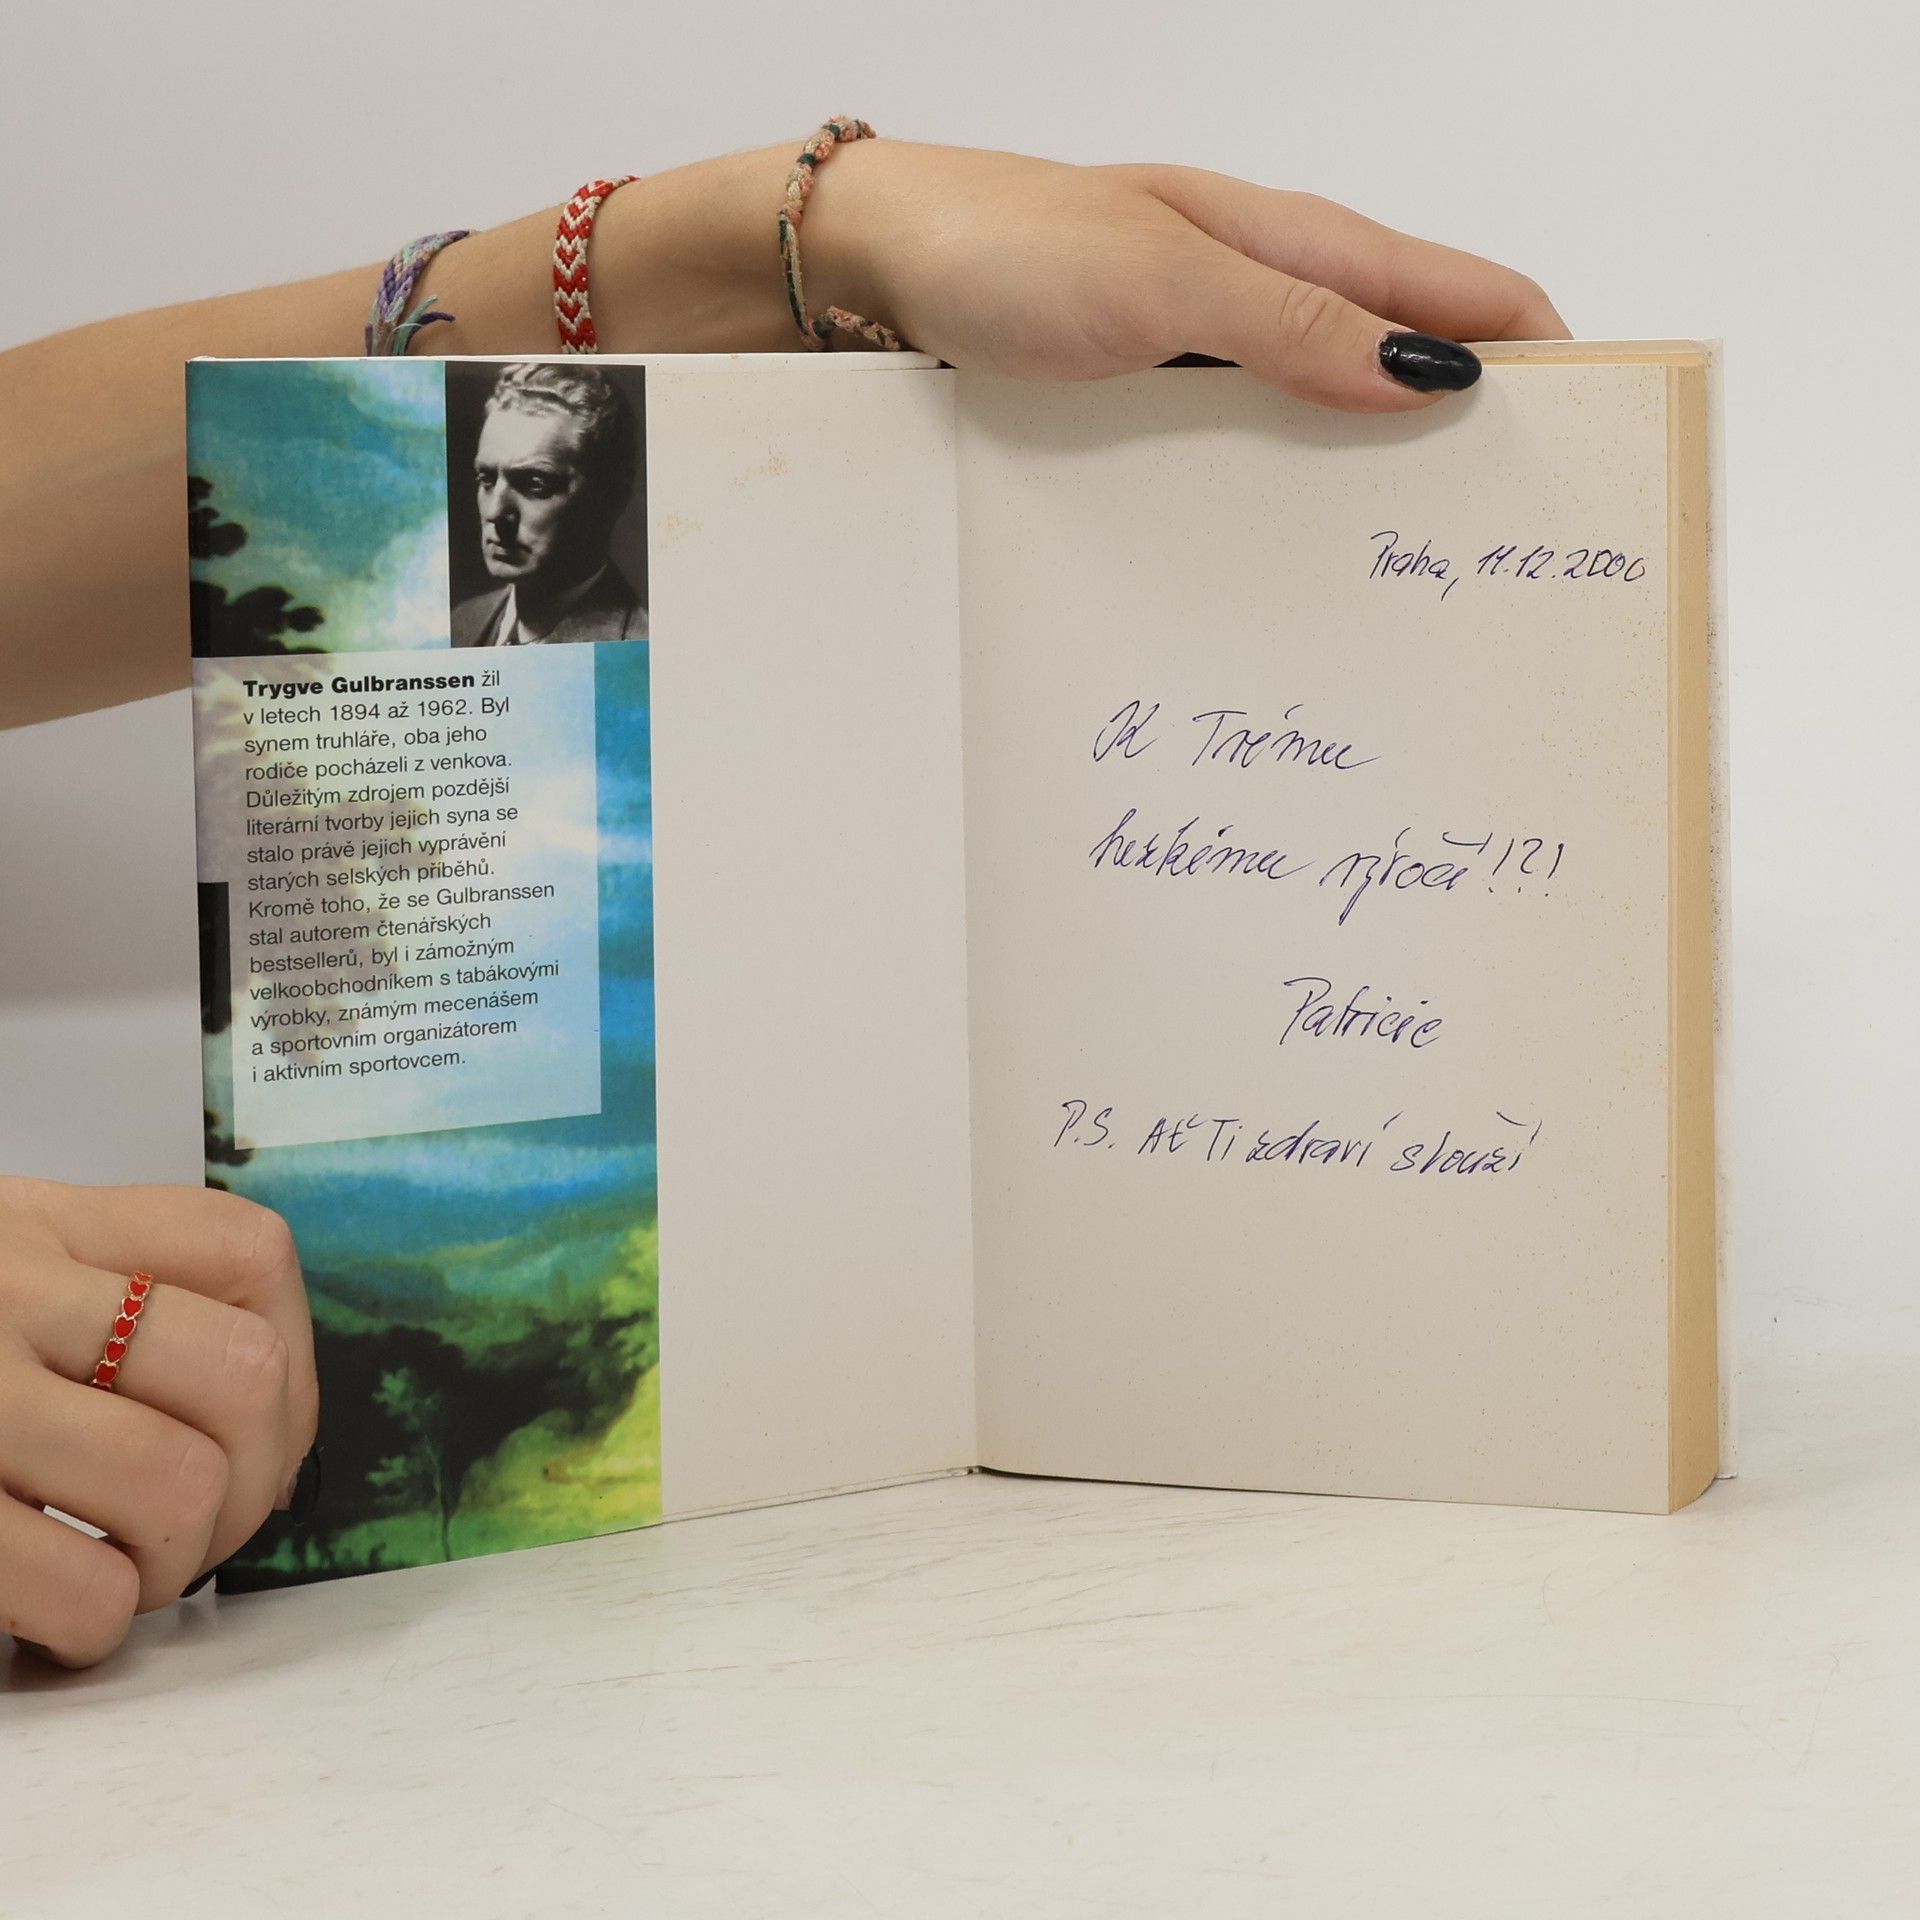 Trygve Gulbranssen žil
v letech 1894 až 1962. Byl
synem truhláře, oba jeho
rodiče pocházeli z venkova.
Důležitým zdrojem pozdější
literární tvorby jejich syna se
stalo právě jejich vyprávění
starých selských příběhů.
Kromě toho, že se Gulbranssen
stal autorem čtenářských
bestsellerů, byl i zámožným
velkoobchodníkem s tabákovými
výrobky, známým mecenášem
a sportovním organizátorem
i aktivním sportovcem.
Praha, 11.12.2000
K Tvému
hezkému výročí!?!
Patricie
P.S. Ať Ti zdraví slouží